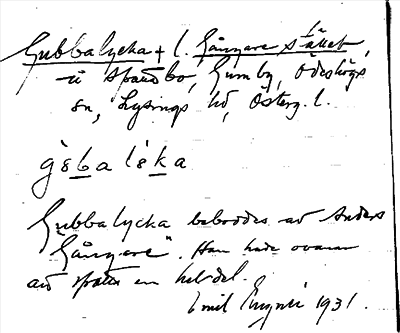 Gubbalycka + l. Gångare stället,
u Spadbo, Gumby, Ödeshögs
sn, Lysings hd, Österg. l.
gèbalèka
Gubbalycka beboddes av Anders
"Gångare". Han hade ovanan
att spatta en hel del.
Emil 1931.